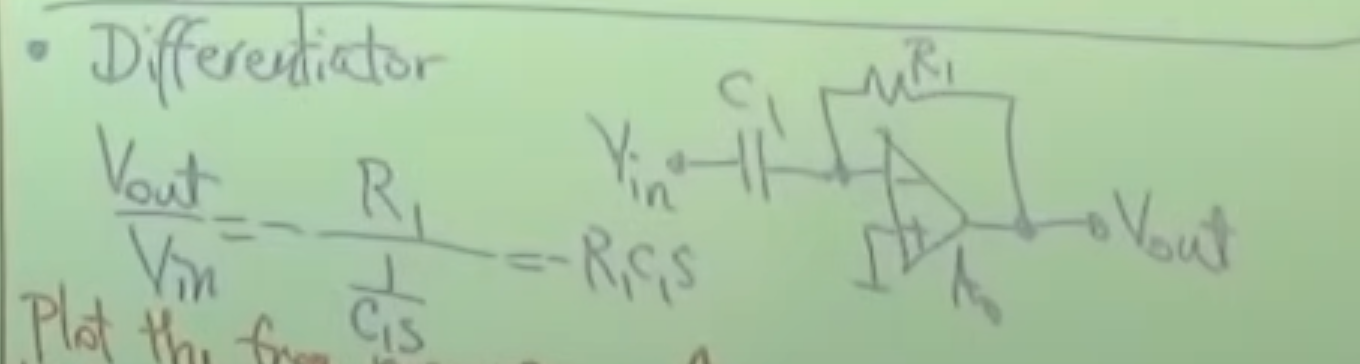 • Differentiator
Vout/Vin = - R₁/(1/C₁S) = - R₁C₁S
C₁
R₁
Vin
-
+
A₀
Vout
Plot the freq